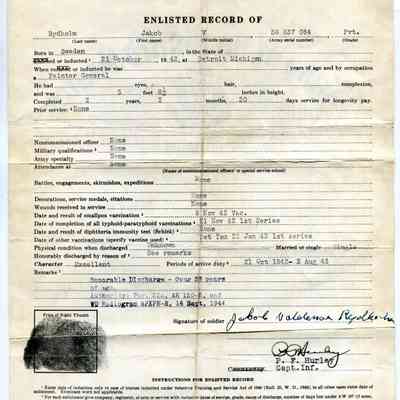 ENLISTED RECORD OF
Rydholm Jakob V Pvt.
(Last name) (First name) (Middle initial) (Army serial number) (Grade)
Born in Sweden , in the State of
or inducted 21 October , 19 42, at Detroit Michigan
When or inducted he was years of age and by occupation
a Painter General
He had eyes, hair, complexion,
and was 5 feet inches in height.
Completed years, months, 20 days service for longevity pay.
Prior service: None
Noncommissioned officer None
Military qualifications None
Army specialty None
Attendance at None
(Name of noncommissioned officers' or special service school)
Battles, engagements, skirmishes, expeditions None
Decorations, service medals, citations None
Wounds received in service None
Date and result of smallpox vaccination 8 Nov 42 Vac.
Date of completion of all typhoid-paratyphoid vaccinations 21 Nov 42 1st Series
Date and result of diphtheria immunity test (Schick) None
Date of other vaccinations (specify vaccine used) Tet Tox 21 Jan 43 1st series
Physical condition when discharged Unknown Married or single Single
Honorably discharged by reason of See remarks
Character Excellent Periods of active duty 21 Oct 1942- 2 Aug 43
Remarks Honorable Discharge - Over 38 years
of age.
WD Radiogram 14 Sept. 1944
Print of Right Thumb
Signature of soldier Jakob Valdemar Rydholm
P. F. Hurley
Capt. Inf.
INSTRUCTIONS FOR ENLISTED RECORD